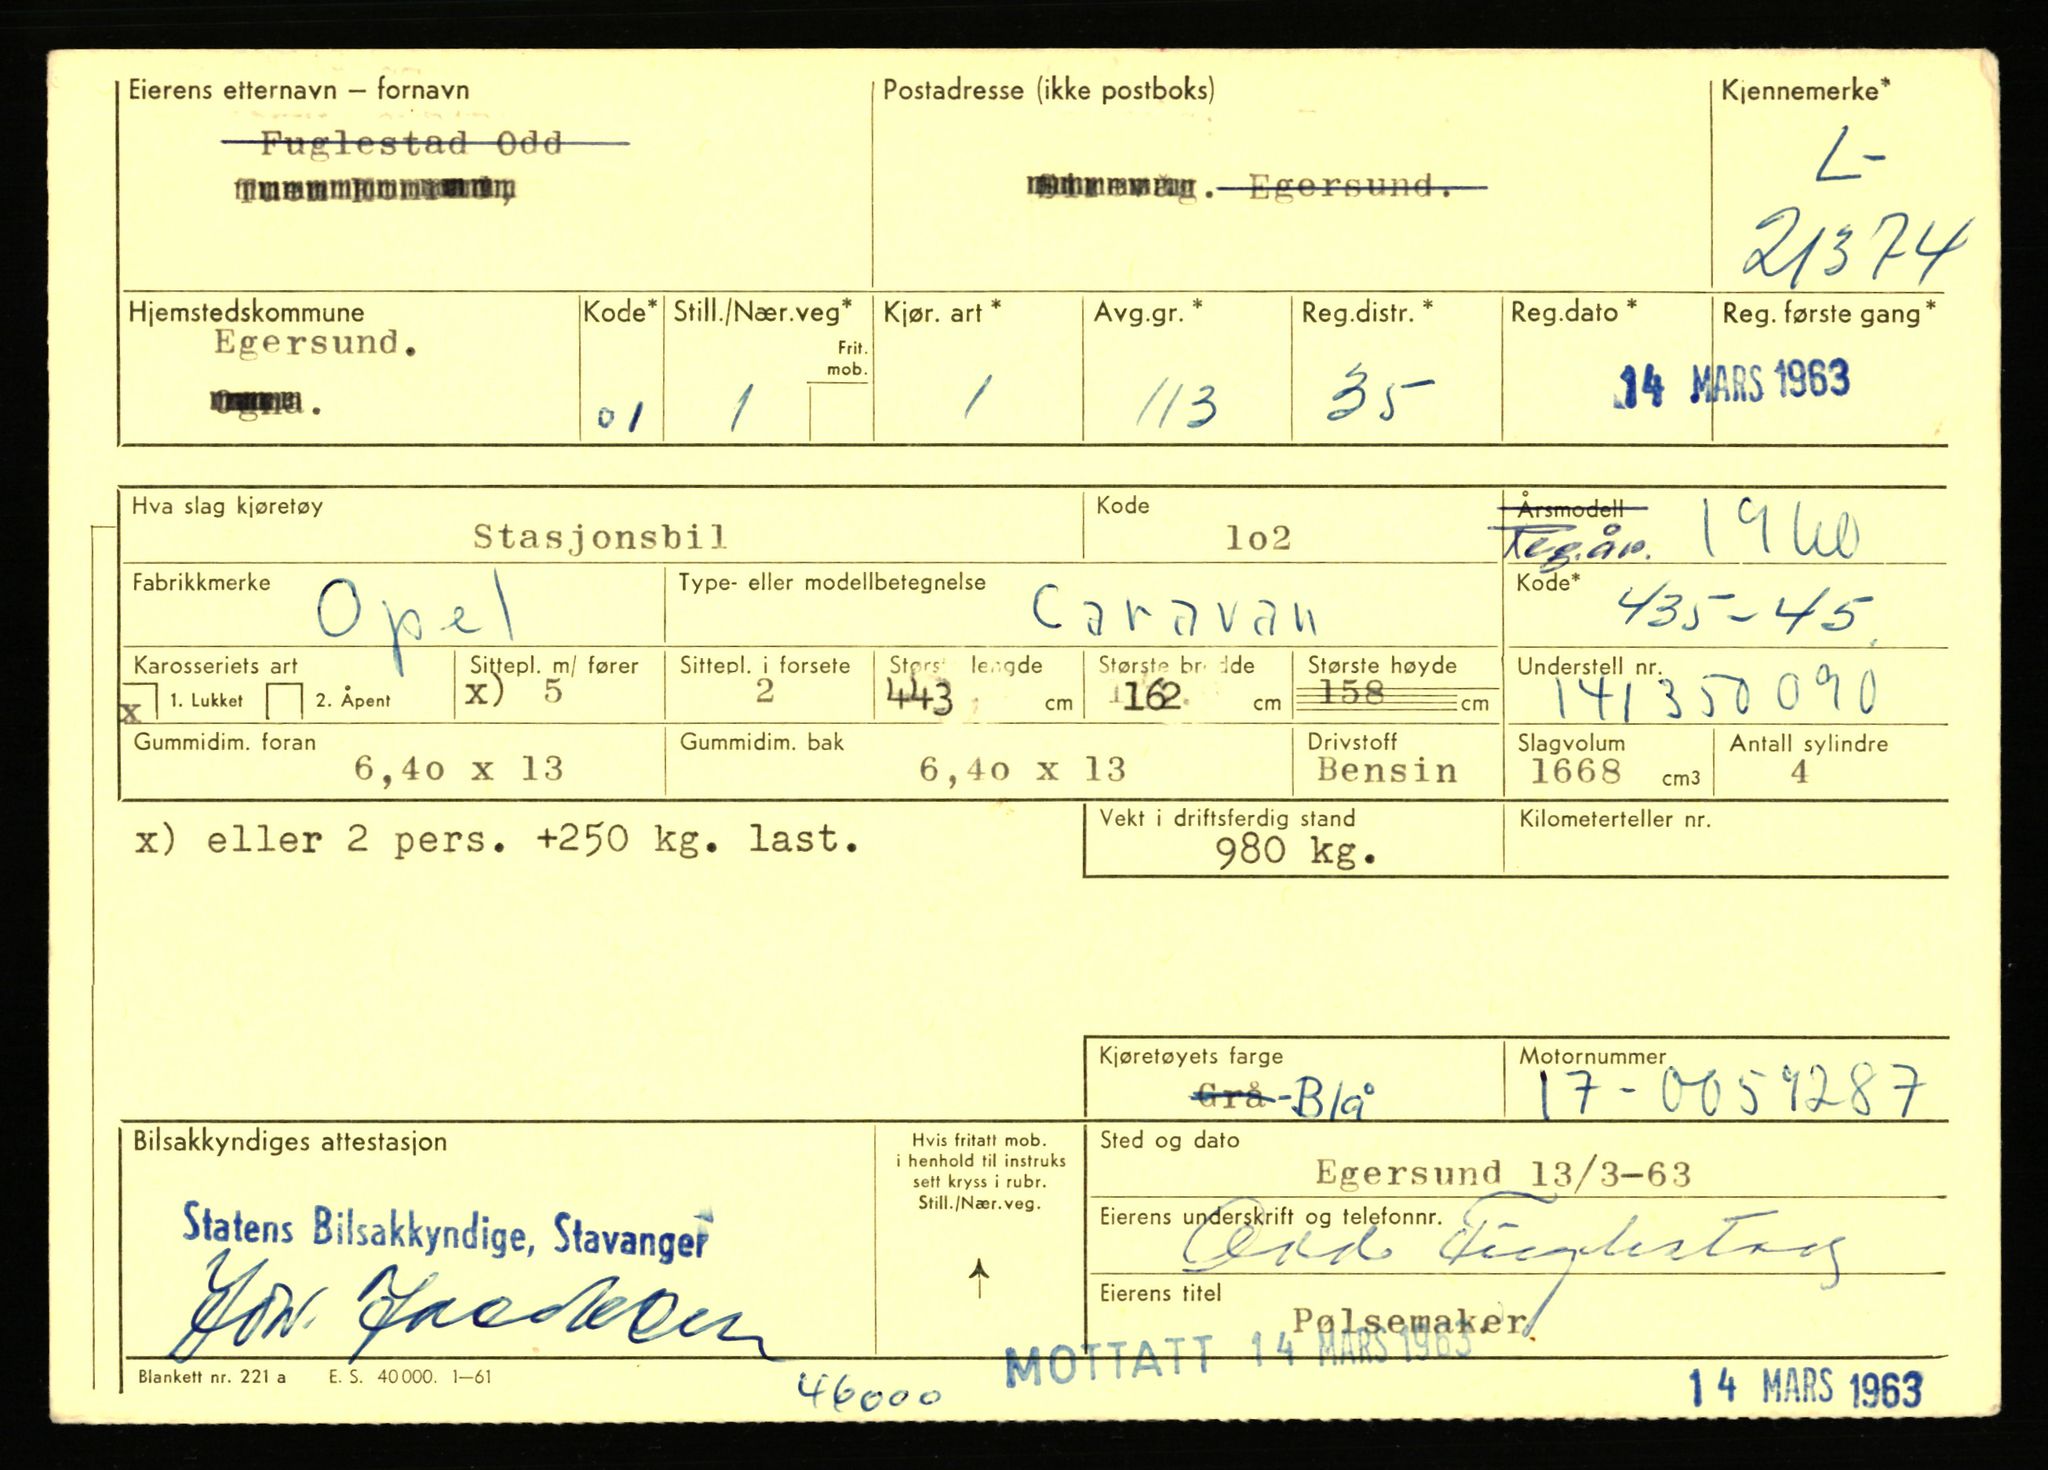 Eierens etternavn – fornavn
Postadresse (ikke postboks)
Kjennemerke*
Fuglestad Odd
Egersund.
L-
21374
Hjemstedskommune
Kode*
Still./Nær.veg*
Kjør. art *
Avg.gr. *
Reg.distr. *
Reg.dato *
Reg. første gang *
Egersund.
Frit.
mob.
Ogna.
01
1
1
113
35
14 MARS 1963
Hva slag kjøretøy
Stasjonsbil
Kode
1o2
Årsmodell
Reg.år.
1960
Fabrikkmerke
Opel
Type- eller modellbetegnelse
Caravan
Kode*
435-45
Karosseriets art
Sittepl. m/ fører
Sittepl. i forsete
Største lengde
Største bredde
Største høyde
Understell nr.
x
1. Lukket
2. Åpent
x) 5
2
443 cm
162 cm
158 cm
141350090
Gummidim. foran
Gummidim. bak
Drivstoff
Slagvolum
Antall sylindre
6,4o x 13
6,4o x 13
Bensin
1668 cm3
4
x) eller 2 pers. +250 kg. last.
Vekt i driftsferdig stand
980 kg.
Kilometerteller nr.
Kjøretøyets farge
Grå-Blå
Motornummer
17-0059287
Bilsakkyndiges attestasjon
Hvis fritatt mob.
i henhold til instruks
sett kryss i rubr.
Still./Nær.veg.
Sted og dato
Egersund 13/3-63
Statens Bilsakkyndige, Stavanger
Eierens underskrift og telefonnr.
Odd Fuglestad
Eierens titel
Pølsemaker
MOTTATT 14 MARS 1963
Blankett nr. 221 a E. S. 40 000. 1–61
46000
14 MARS 1963